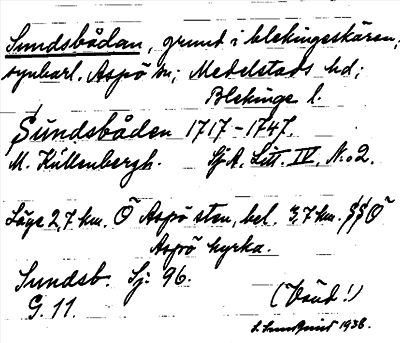 Sundsbådan, grund i blekingeskären,
synbarl. Aspö sn; Medelstads hd;
Blekinge l.
Sundsbåden 1717-1747,
M. Källenbergh. SjA. Litt. IV, N:o 2.
Läge 2,7 km. Ö Aspö sten, bel. 3,7 km. SSÖ
Aspö kyrka.
Sundsb. Sj: 96.
G. 11.
(Vänd!)
1938.